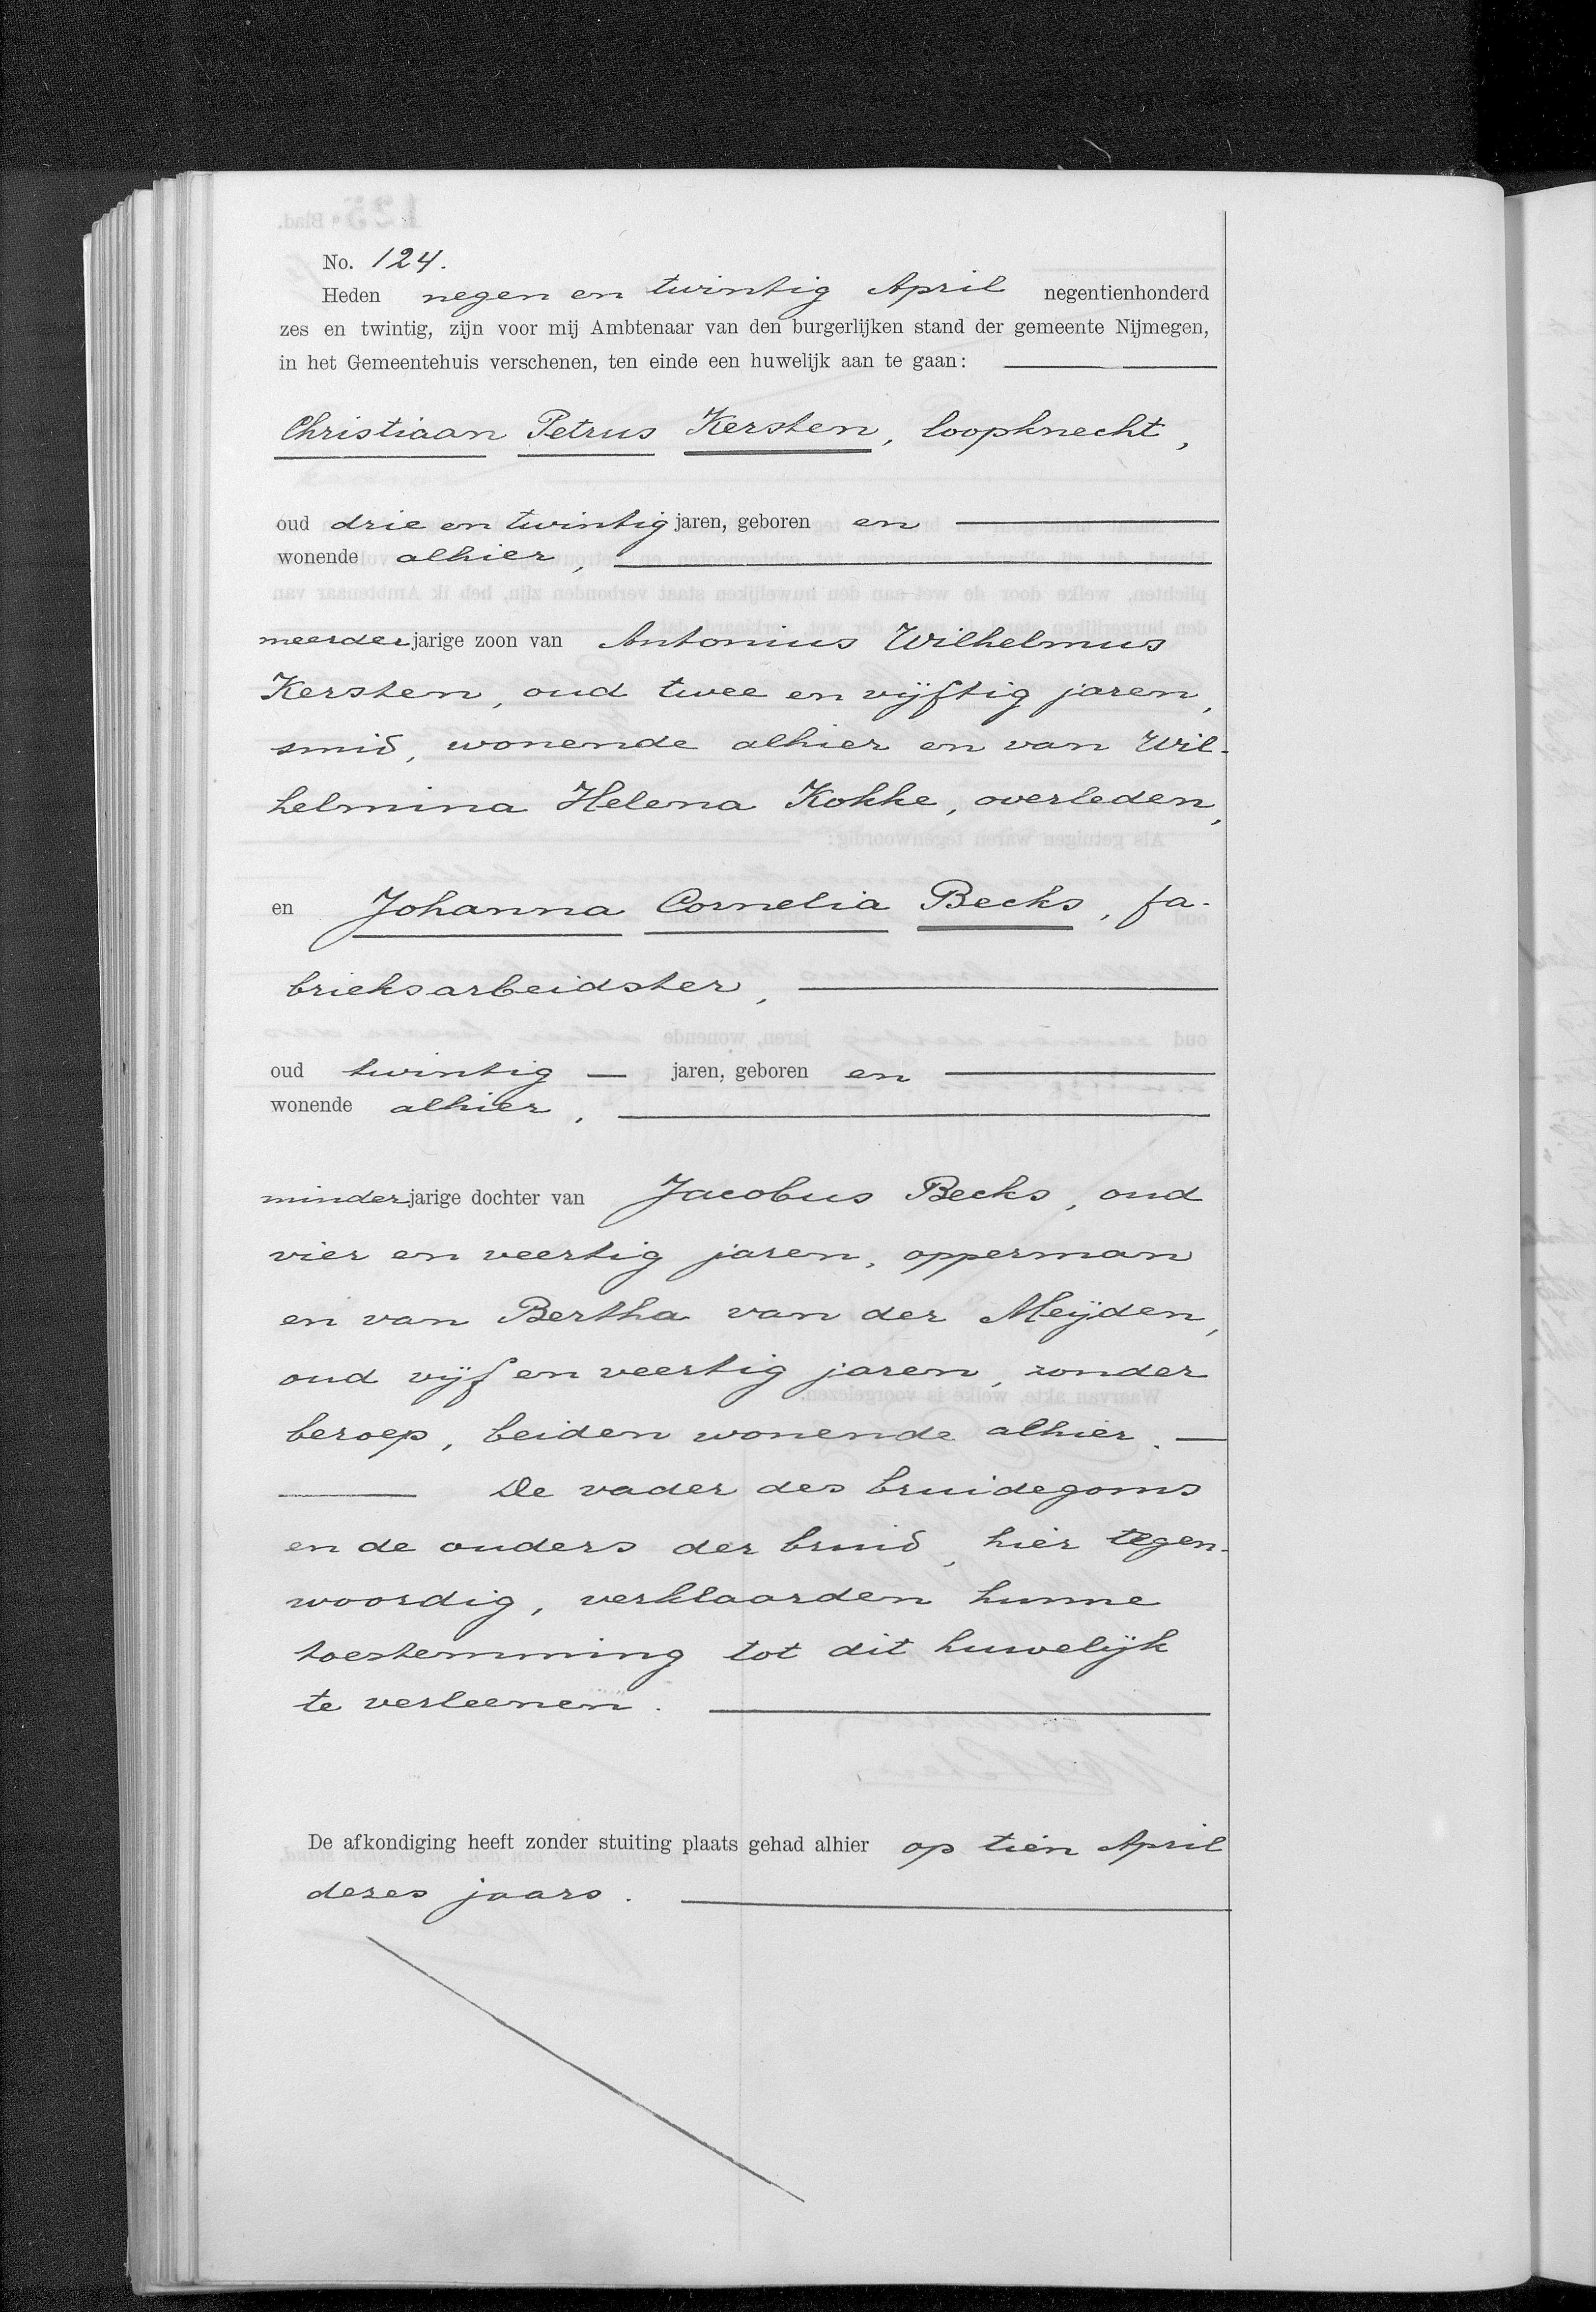 No. 124.
Heden negen en twintig April negentienhonderd
zes en twintig, zijn voor mij Ambtenaar van den burgerlijken stand der gemeente Nijmegen,
in het Gemeentehuis verschenen, ten einde een huwelijk aan te gaan:
Christiaan Petrus Kersten, loopknecht,
oud drie en twintig jaren, geboren en
wonende alhier,
meerderjarige zoon van Antonius Wilhelmus
Kersten, oud twee en vijftig jaren,
smid, wonende alhier en van Wil-
helmina Helena Kokke, overleden,
en Johanna Cornelia Becks, fa-
brieksarbeidster,
oud twintig — jaren, geboren en
wonende alhier,
minderjarige dochter van Jacobus Becks, oud
vier en veertig jaren, opperman
en van Bertha van der Meijden,
oud vijf en veertig jaren, zonder
beroep, beiden wonende alhier. —
De vader des bruidegoms
en de ouders der bruid, hier tegen-
woordig, verklaarden hunne
toestemming tot dit huwelijk
te verleenen.
De afkondiging heeft zonder stuiting plaats gehad alhier op tien April
dezes jaars.